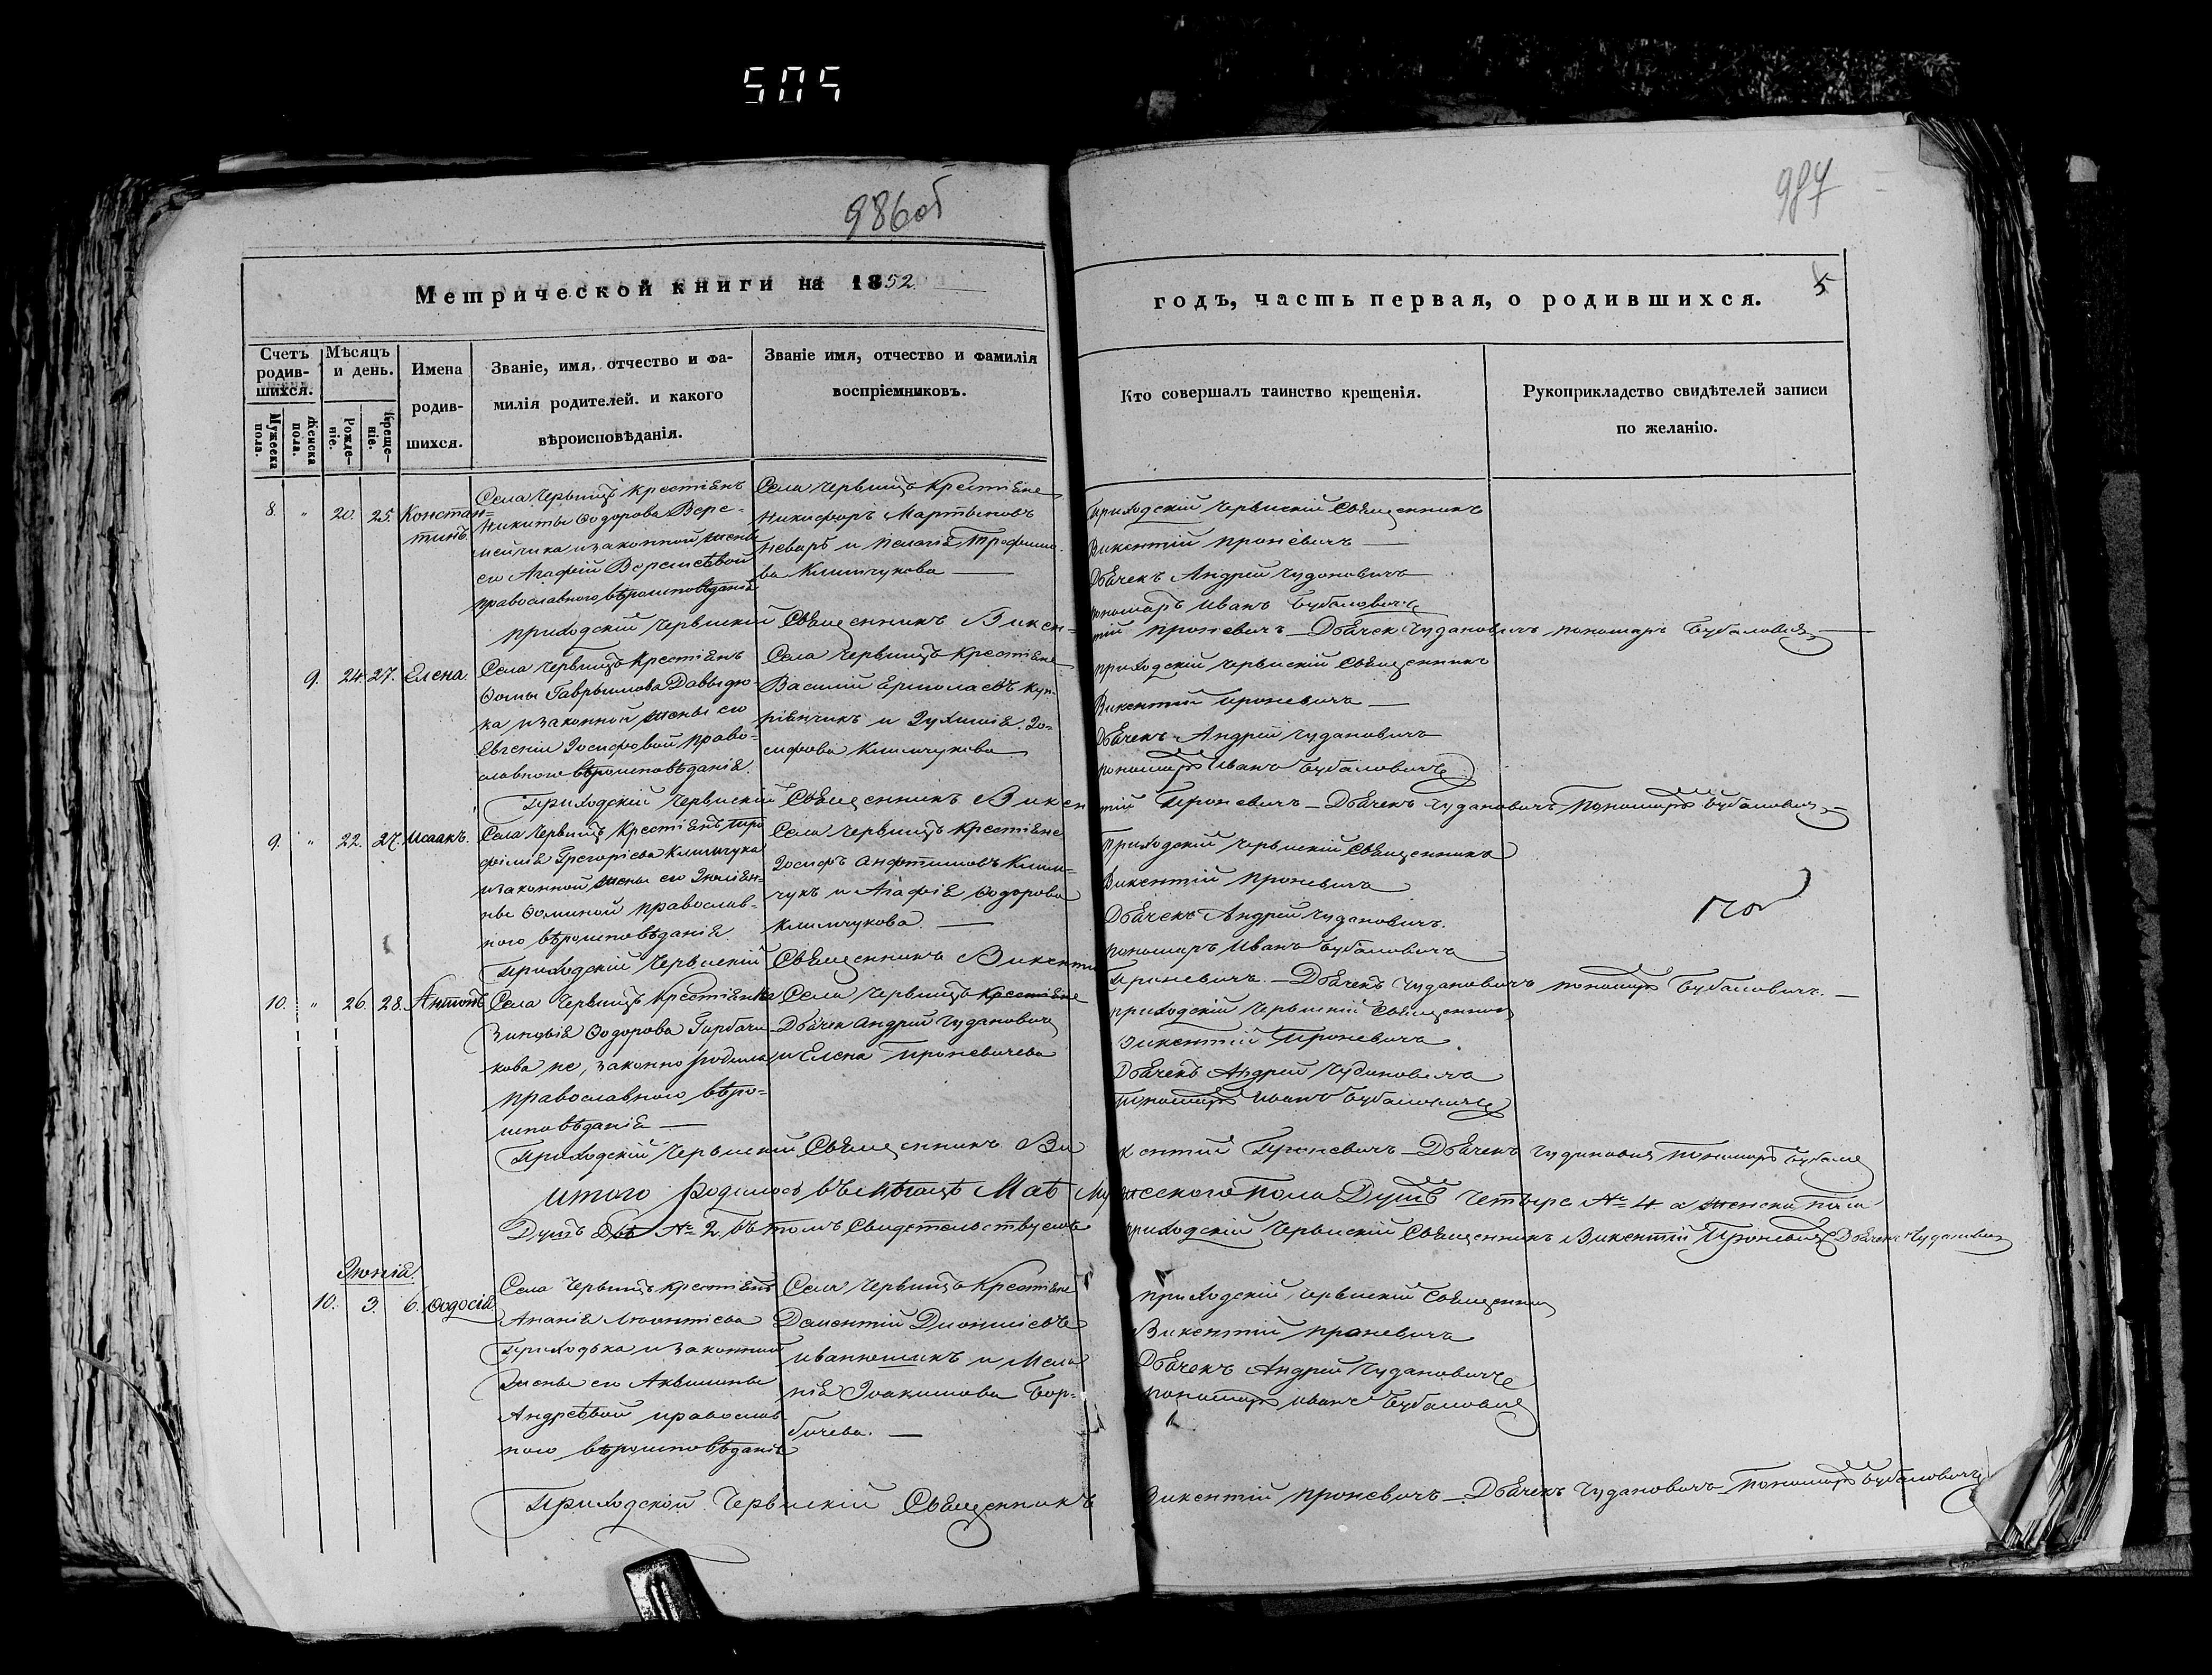 505
986об
987
Метрической книги на 1852
годъ, часть первая, о родившихся.
5
Счетъ родив-шихся.
Мѣсяцъ и день.
Имена родив-шихся.
Званіе, имя, отчество и фа-
милія родителей. и какого
вѣроисповѣданія.
Званіе имя, отчество и фамилія
воспріемниковъ.
Кто совершалъ таинство крещенія.
Рукоприкладство свидѣтелей записи
по желанію.
Мужеска пола.
Женска пола.
Рожде-ніе.
Креще-ніе.
8. " 20. 25. Констан=
тинъ.
Села Червищъ крестьянъ
Никиты Ѳодорова Вере-
мейчика и законной жены
его Агафіи
православного вѣроисповѣданія
Села Червищъ Крестьяне
Никифоръ Мартыновъ
и Пелагія Трофимо
ва Климчукова
Приходскій Червискій Священникъ
Викентій Проневичъ
Дьячекъ Андрей Чудановичъ
пономаръ Иванъ Бубановичъ
приходскій Червискій Священникъ Викен=
тій Проневичъ — Дьячек Чудановичъ пономаръ Бубановичъ
9. 24. 27. Елена.
Села Червищъ Крестьянъ
Ѳомы Гаврылова Давыдю
ка и законной жены его
Евгеніи Іосифовой право=
славного вѣроисповѣданія.
Села Червищъ Крестьяне
Василій Ермолаевъ Куп-
и Іо=
сифова Климчукова
приходскій Червискій Священникъ
Викентій Проневичъ
Дьячекъ Андрей Чудановичъ
пономаръ Иванъ Бубановичъ
Приходскій Червискій Священникъ Викен
тій Проневичъ — Дьячекъ Чудановичъ Пономаръ Бубановичъ
9. " 22. 27. Исаакъ.
Села Червищъ Крестьянъ Тро
фимія Грегоріева Климчука
и законной жены его Іюліян=
ны Ѳоминой православ-
ного вѣроисповѣданія.
Села Червищъ Крестьяне
Іосифъ Клим-
чукъ и Агафія Ѳодорова
Климчукова.
Приходскій Червискій Священникъ
Викентій Проневичъ
Дьячекъ Андрей Чудановичъ.
пономаръ Иванъ Бубановичъ
Приходскій Червискій Священникъ Викентій
Проневичъ. — Дьячекъ Чудановичъ пономаръ Бубановичъ.
10. " 26. 28. Антонъ
Села Червищъ Крестьянка
Зиновія Ѳодорова Горбачу
кова не, законно родила
православного вѣро=
исповѣданія
Села Червищъ Крестьяне
Дьячек Андрей Чудановичъ
и Елена Проневичева
приходскій Червискій Священникъ
Викентій Проневичъ.
Дьячекъ Андрей Чудановичъ
Пономаръ Иванъ Бубановичъ
Приходскій Червискій Священникъ Ви
кентій Проневичъ — Дьячекъ Чудановичъ пономаръ
Итого родилось въ мѣсяцѣ Маѣ Мужеского Пола Душъ Четыре № 4. а женска пола
Душъ двѣ № 2. въ томъ Свидетельствуемъ приходскій Червискій Священникъ Викентій Проневичъ Дьячекъ Чудановичъ
Іюнія.
10. 3. 6. Ѳодосія
Села Червищъ крестьянъ
Ананія
Приходька и законной
жены его Акилины
Андреевой православ
ного вѣроисповѣданія
Села Червищъ Крестьяне
Дементій Діонисіевъ
Иванюшикъ и Мела
нія Іоакимова Гор=
бачева.
Приходскій Червискій Священникъ
Викентій Проневичъ
Дьячекъ Андрей Чудановичъ
пономаръ Иванъ Бубановичъ
Приходской Червискій Священникъ
Викентій Проневичъ — Дьячекъ Чудановичъ Пономаръ Бубановичъ